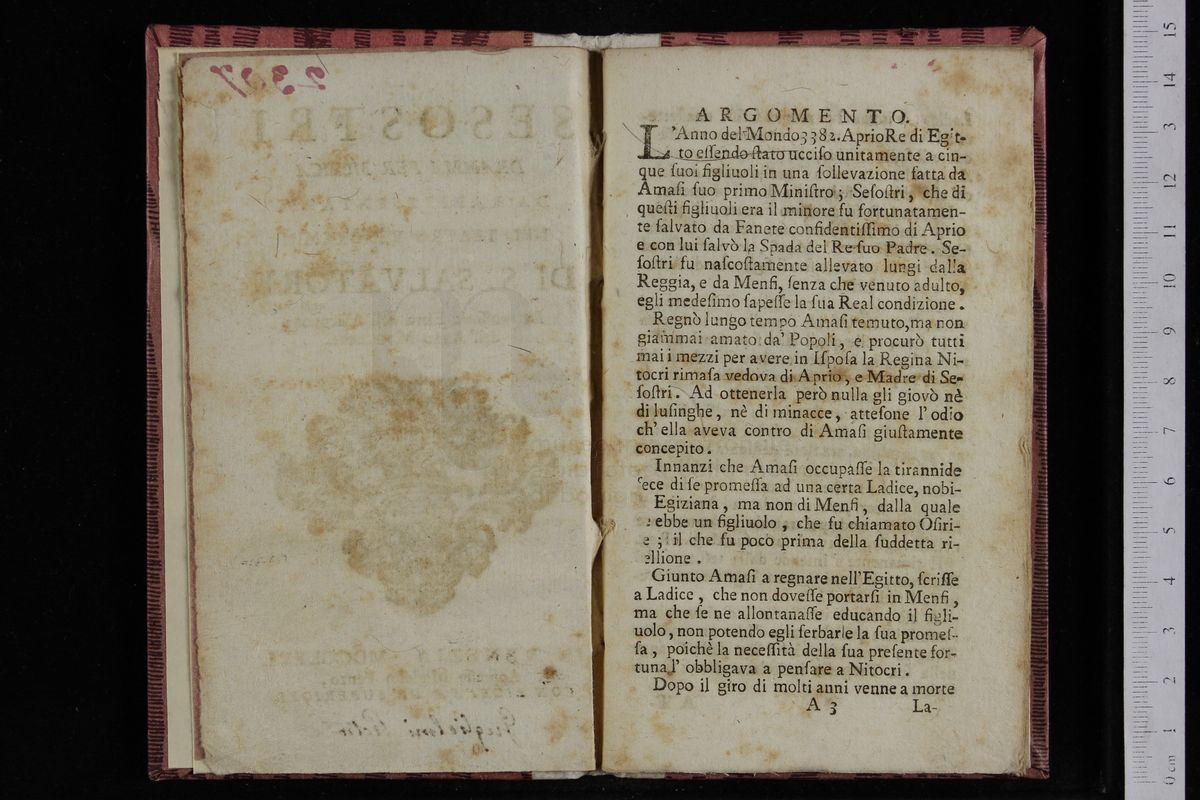 2327
ARGOMENTO.
L'Anno del Mondo 3382. Aprio Re di Egit-
to eſſendo ſtato ucciſo unitamente a cin-
que ſuoi figliuoli in una ſollevazione fatta da
Amaſi ſuo primo Miniſtro; Seſoſtri, che di
queſti figliuoli era il minore fu fortunatamen-
te ſalvato da Fanete confidentiſſimo di Aprio
e con lui ſalvò la Spada del Re ſuo Padre. Se-
ſoſtri fu naſcoſtamente allevato lungi dalla
Reggia, e da Menfi, ſenza che venuto adulto,
egli medeſimo ſapeſſe la ſua Real condizione.
Regnò lungo tempo Amaſi temuto, ma non
giammai amato da' Popoli, e procurò tutti
mai i mezzi per avere in Iſpoſa la Regina Ni-
tocri rimaſa vedova di Aprio, e Madre di Se-
ſoſtri. Ad ottenerla però nulla gli giovò nè
di luſinghe, nè di minacce, atteſone l'odio
ch'ella aveva contro di Amaſi giuſtamente
concepito.
Innanzi che Amaſi occupaſſe la tirannide
fece di ſe promeſſa ad una certa Ladice, nobi-
Egiziana, ma non di Menfi, dalla quale
ebbe un figliuolo, che fu chiamato Oſiri-
e; il che fu poco prima della ſuddetta ri-
ellione.
Giunto Amaſi a regnare nell'Egitto, ſcriſſe
a Ladice, che non doveſſe portarſi in Menfi,
ma che ſe ne allontanaſſe educando il figli-
uolo, non potendo egli ſerbarle la ſua promeſ-
ſa, poichè la neceſſità della ſua preſente for-
tuna l'obbligava a penſare a Nitocri.
Dopo il giro di molti anni venne a morte
A 3 La-